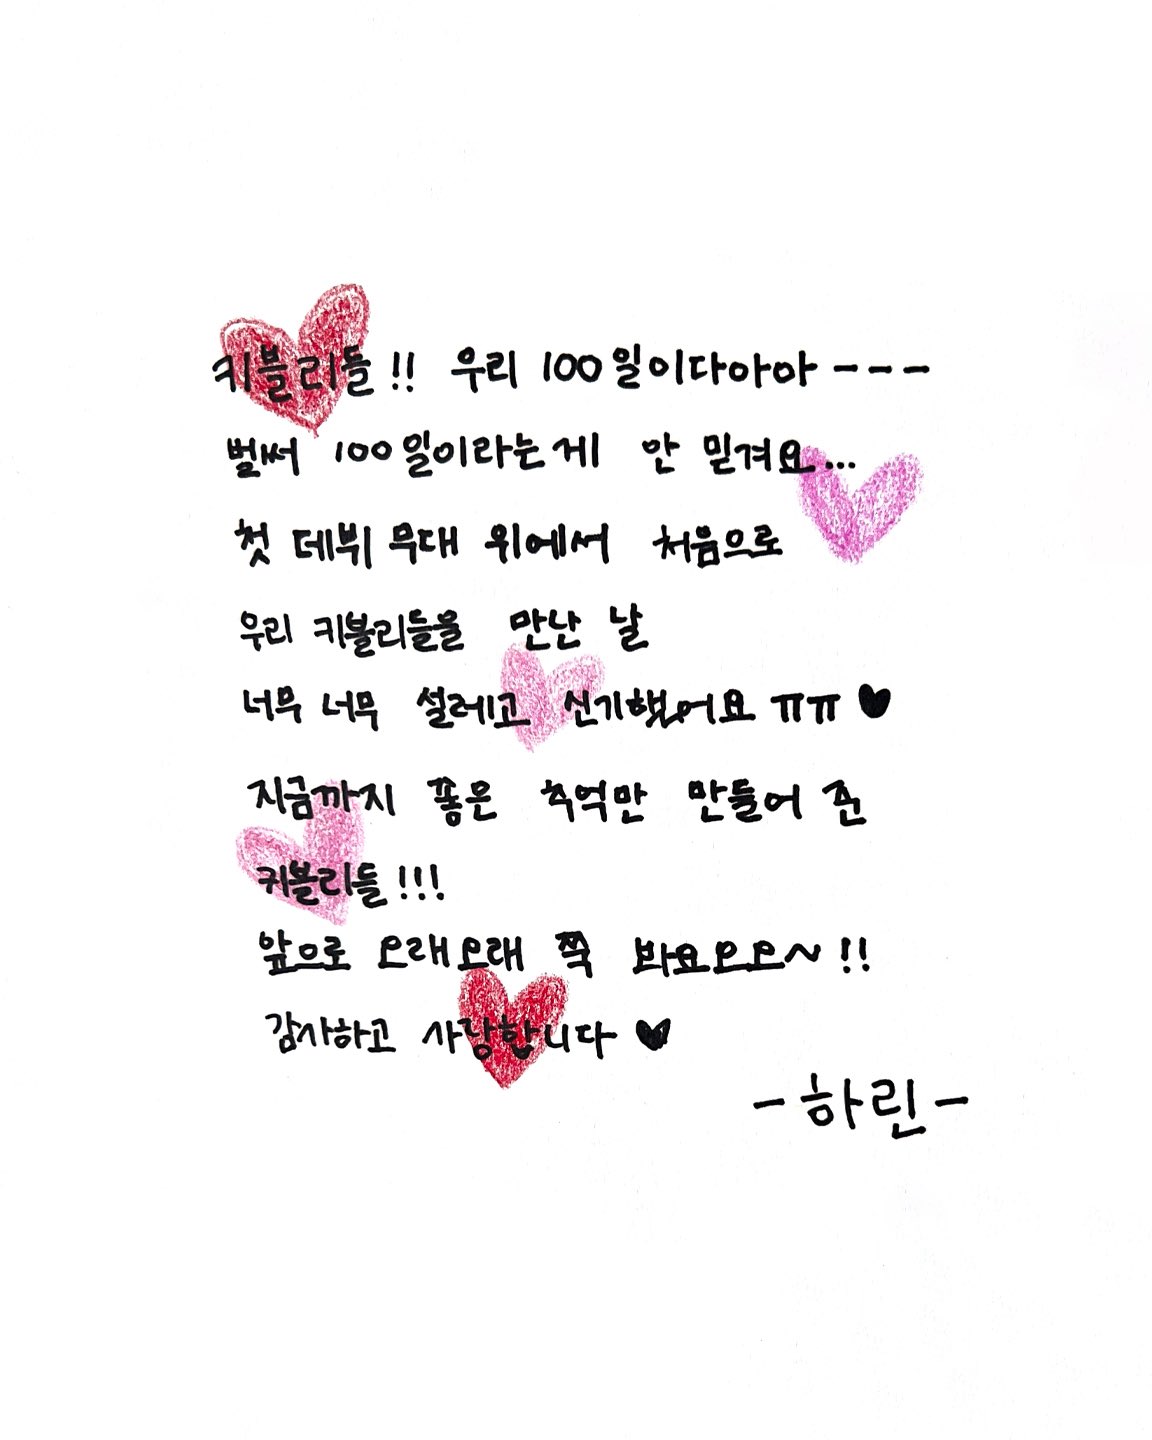 키블리들!! 우리 100일이다아아 ---
벌써 100일이라는게 안 믿겨요...
첫 데뷔 무대 위에서 처음으로
우리 키블리들을 만난 날
너무 너무 설레고 신기했어요 ㅠㅠ ♥
지금까지 좋은 추억만 만들어 준
키블리들!!!
앞으로 오래오래 쭉 봐요오오~!!
감사하고 사랑합니다 ♥
-하린-